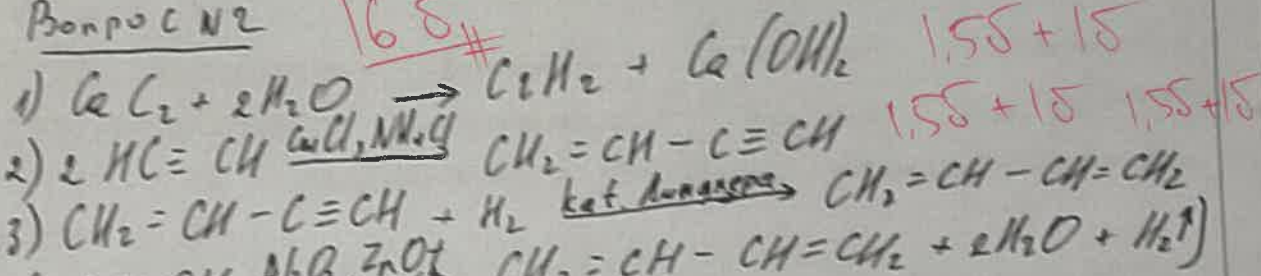 Вопрос N2 16б
1) CaC₂ + 2H₂O → C₂H₂ + Ca(OH)₂ 1,5б + 1б
2) 2 HC≡CH CuCl, NH₄Cl CH₂=CH–C≡CH 1,5б + 1б 1,5б + 1б
3) CH₂=CH–C≡CH + H₂ kat. Линдлера → CH₂=CH–CH=CH₂
ZnO, t CH₂=CH–CH=CH₂ + 2H₂O + H₂↑)